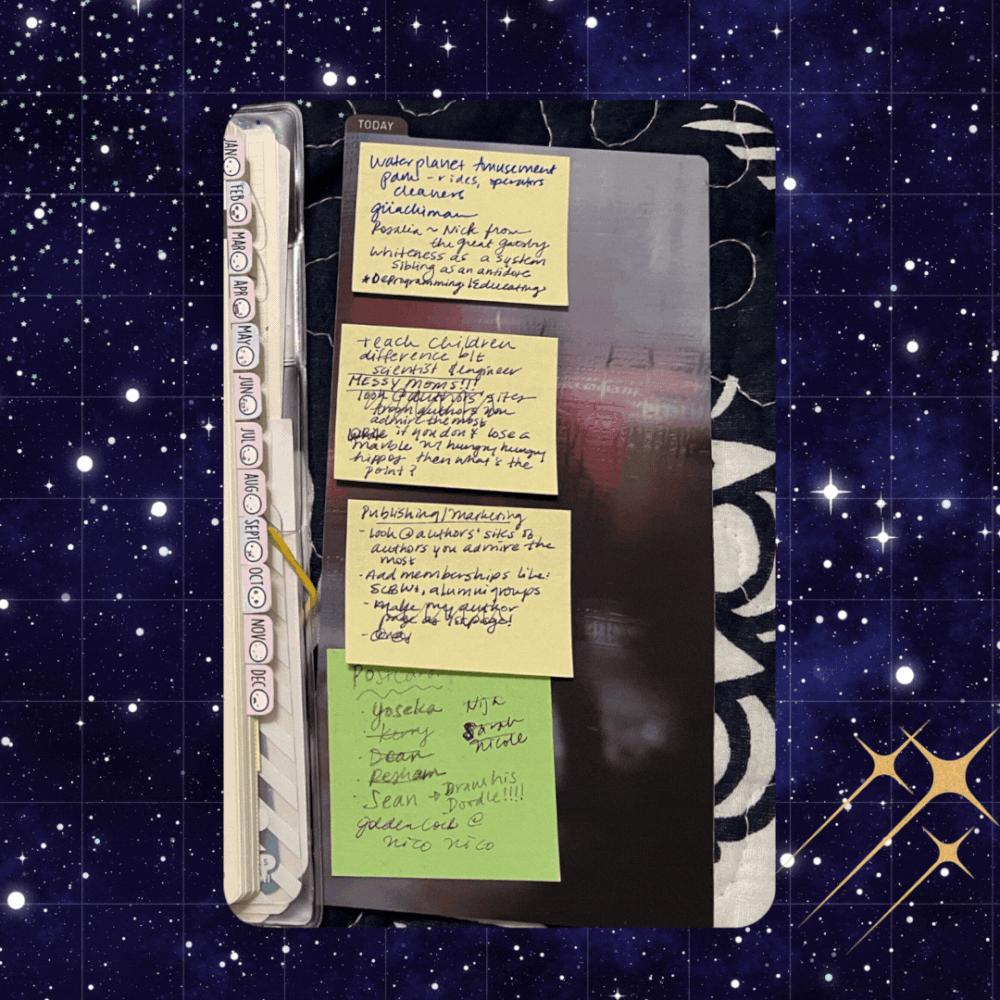 TODAY
JAN
FEB
MAR
APR
MAY
JUN
JUL
AUG
SEPT
OCT
NOV
DEC
Waterplanet Amusement
park - rides, operators
cleaners
güachiman
Rosalia ~ Nick from
the great gatsby
whiteness as a system
sibling as an antidote
*Deprogramming & educating
teach children
difference b/t
scientist & engineer
MESSY MOMS!!!
look @ authors' sites
from authors you
admire the most
if you don't lose a
marble w/ hungry hungry
hippos then what's the
point?
Publishing/marketing
- look @ authors' sites of
authors you admire the
most
- Add memberships like:
SCBWI, alumni groups
- Make my author
page as 1st page!
Postcard
· Yoseka
· Kerry
· Dean
· Resham
· Sean → Draw his
Doodle!!!!
Nija
Sarah
Nicole
@
nico nico